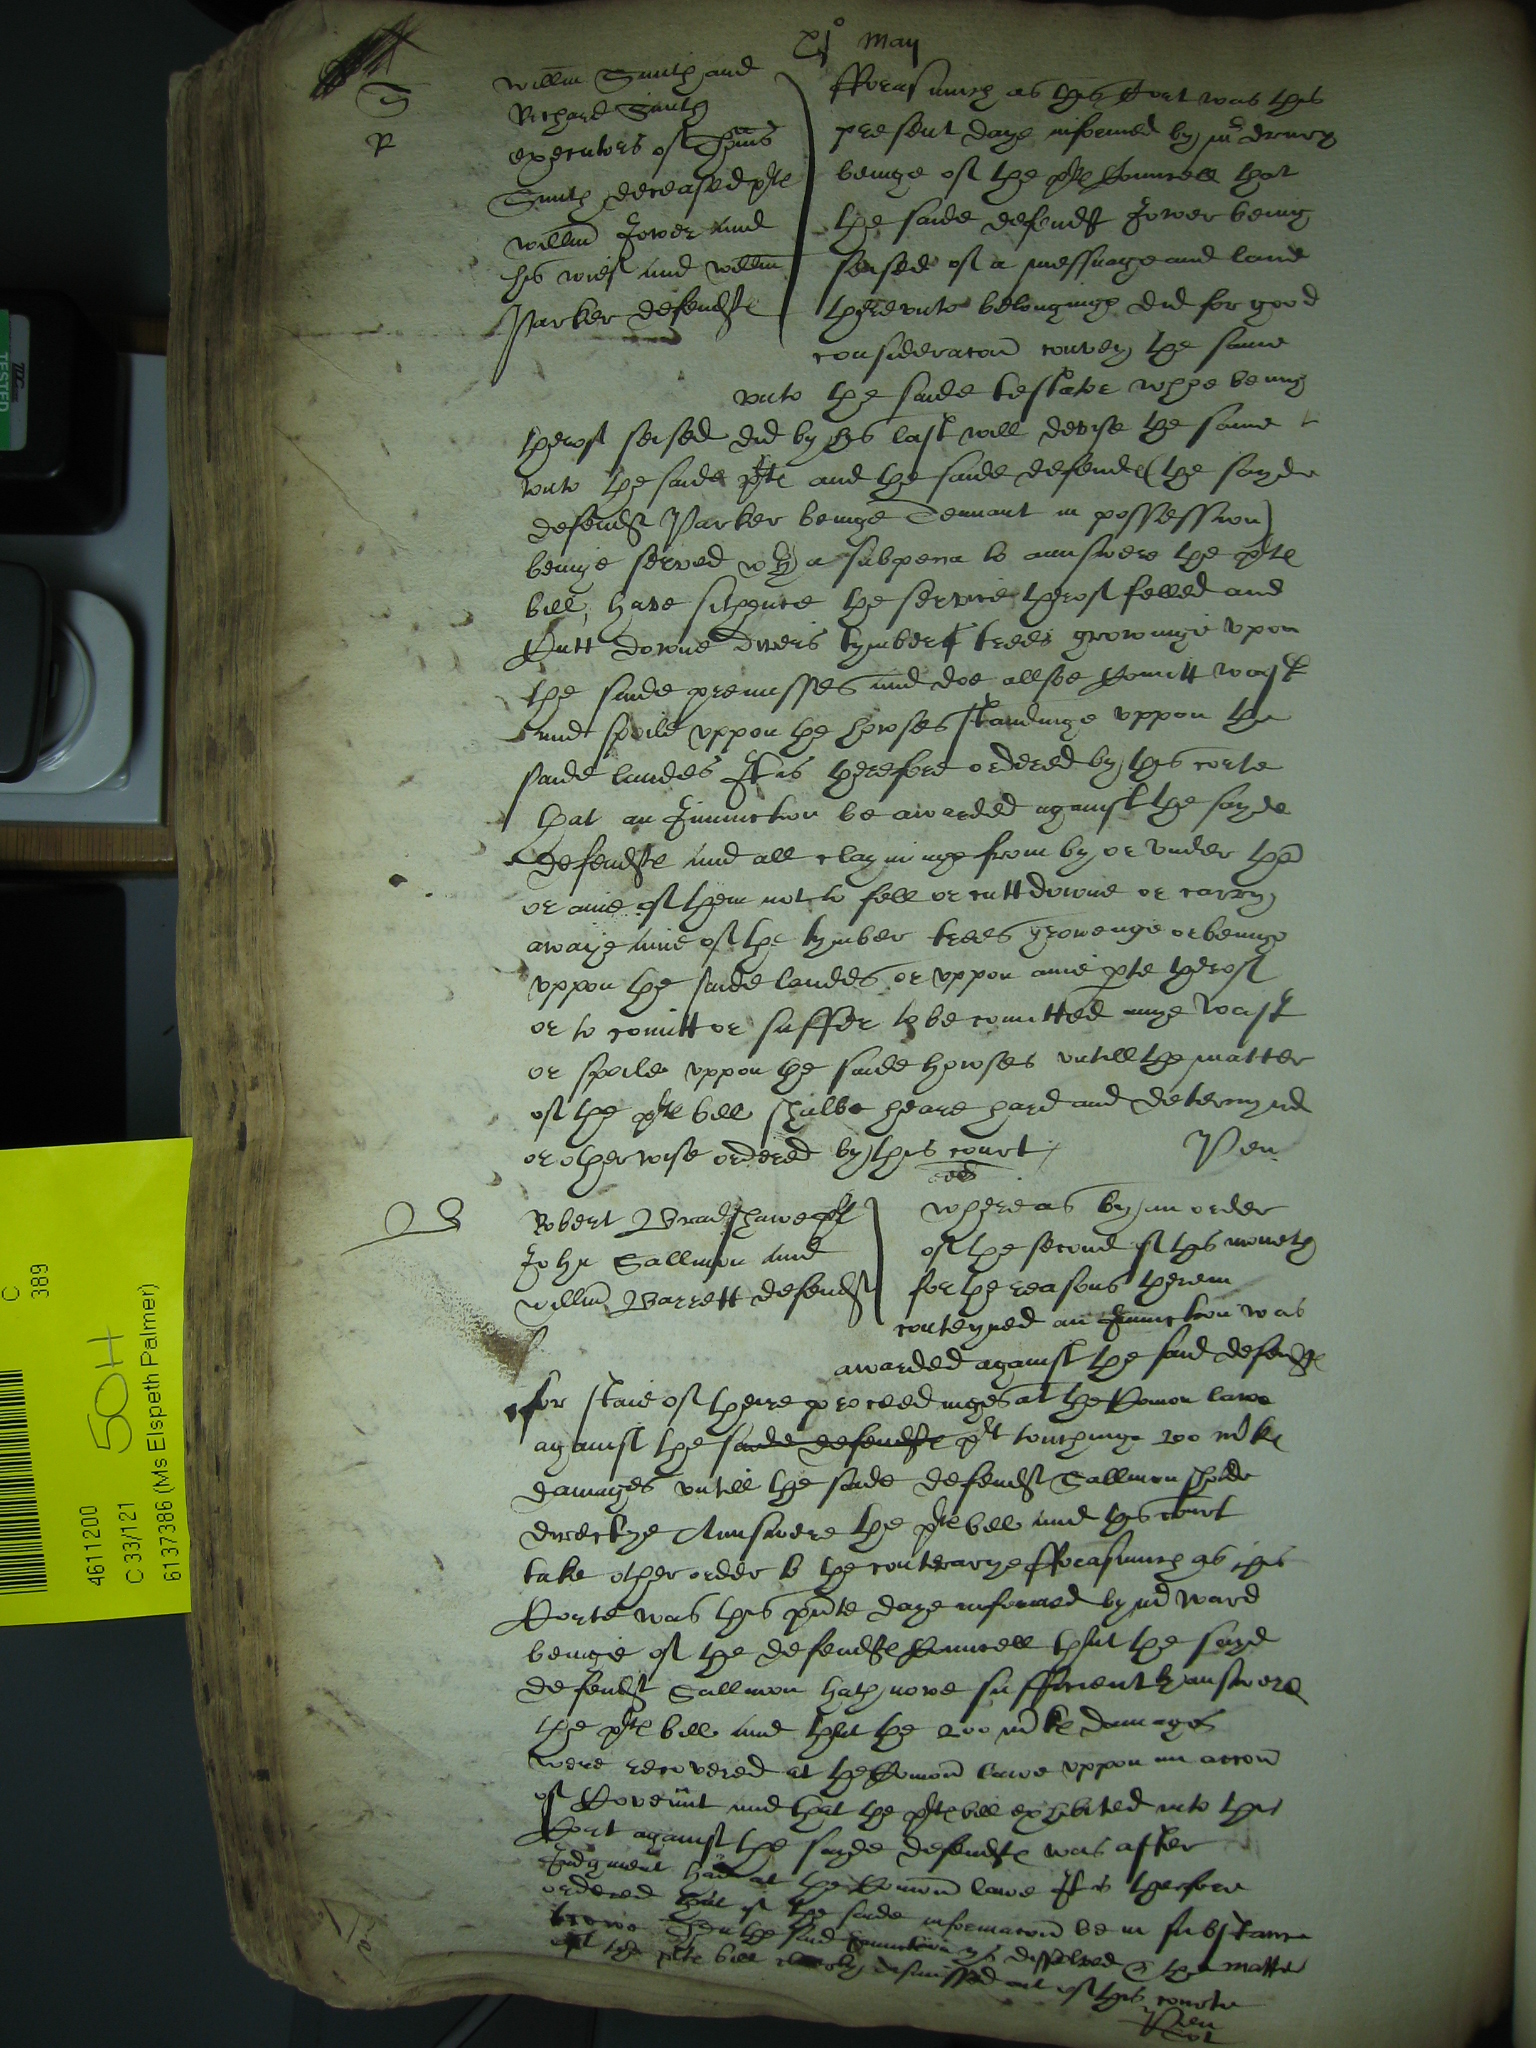 xj° May
S
R
Willm Smith and
Richard Smith
executors of Thoms
Smith deceased plts
Willm Jower and
his wief and Willm
Parker defendts
fforasmuch as this Court was this
present daye informed by mr drury
beinge of the plts Councell that
the saide defendt Jower being
seised of a messuage and land
therevnto belonginge did for good
consideracon convey the same
vnto the saide testator whoe being
therof seised did by his last will devise the same
vnto the saide plts and the saide defendts (the sayde
defendt Parker beinge Tennant in possession)
beinge served wth a subpena to aunswere the plts
bill, have sithence the service therof felled and
Cutt downe divers tymber trees growinge vpon
the saide premisses and doe allsoe Comitt wast
and spoile vppon the howses standinge vppon the
saide landes It is therefore ordered by this corte
that an Iniunction be awarded against the sayde
defendts and all clayminge from by or vnder them
or anie of them not to fell or cutt downe or carry
awaye anie of the tymber trees growenge or beinge
vppon the saide landes or vppon anie pte therof
or to comitt or suffer to be comitted anye wast
or spoile vppon the saide howses vntill the matter
of the plts bill shalbe heare hard and determyned
or otherwise ordered by this court
Pen
B
Robert Bradshawe plt
John Sallmon and
Willm Barrett defendts
whereas by an order
of the second of this moneth
for the reasons therein
conteyned an Iniunction was
awarded against the said defendts
for staie of theire proceedinges at the Comon lawe
against the saide defendts plt touchinge 200 mrkes
damages vntill the saide defendt Sallmon shold
directlye Aunswere the plts bill and this court
take other order to the contrarye fforasmuch as this
Corte was this pnte daye informed by mr Ward
beinge of the defendts Councell that the sayd
defendt Sallmon hath nowe sufficiently answered
the plts bill and that the 200 mrkes damages
were recovered at the Comon lawe vppon an accon
of Covennt and that the plts bill exhibited into this
Court against the sayde defendts was after
Iudgment had at the Comon lawe It is therfore
ordered that yf the saide informacon be in substance
trewe Then the said Iniunction ys dissolved & the matter
of the plts bill clerely dismissed out of this courte
Pen
C
389
50H
4611200
C 33/121
6137386 (Ms Elspeth Palmer)
TESTED